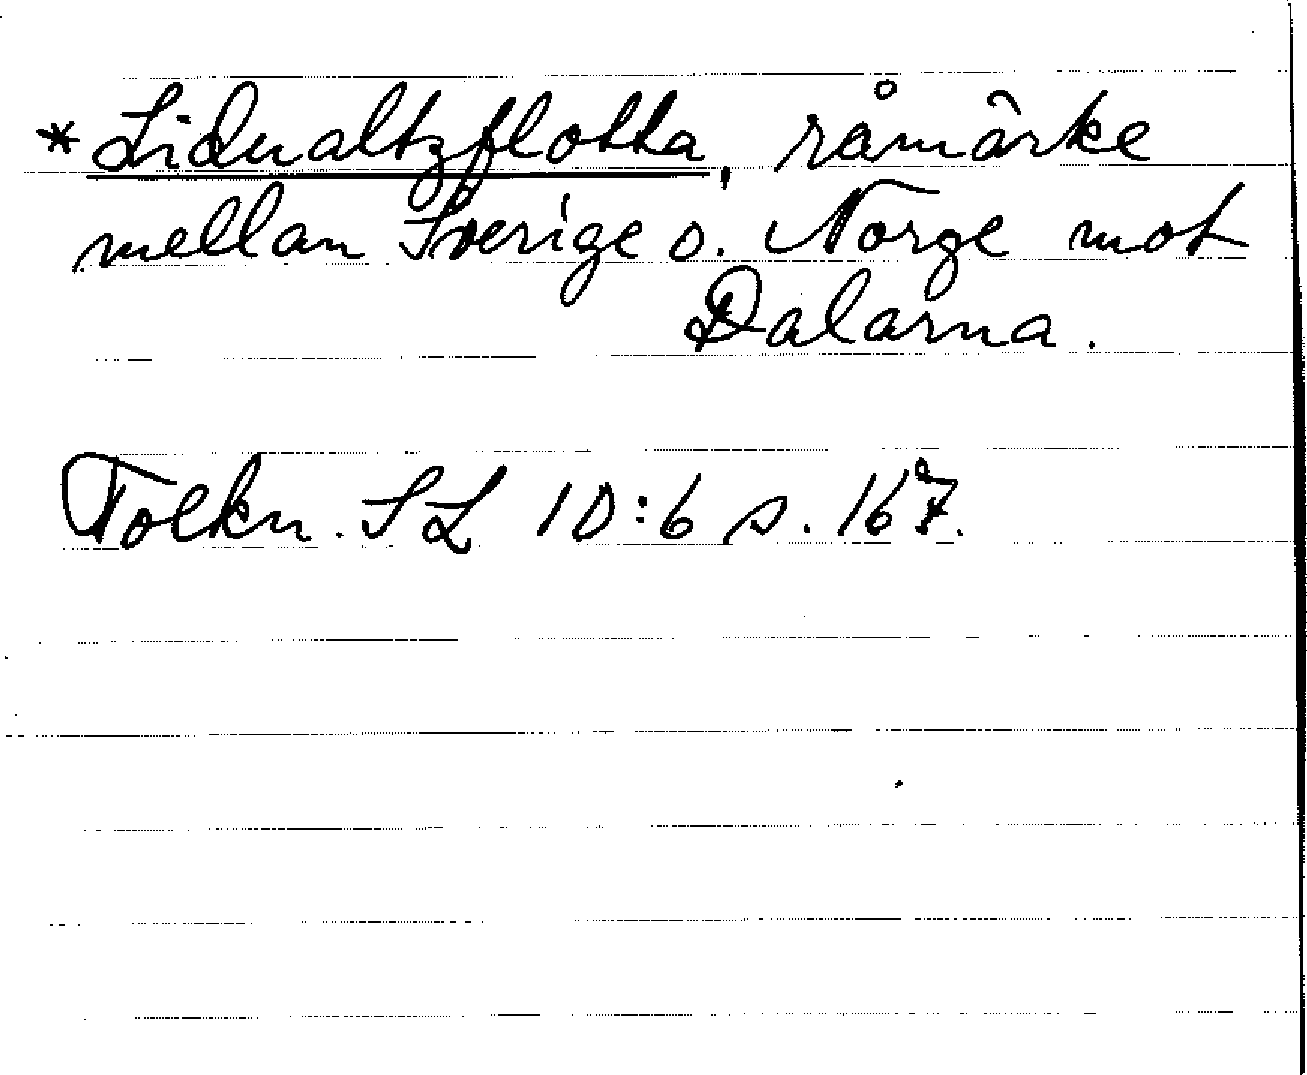 *Lidualtzflotta, råmärke
mellan Sverige o. Norge mot
Dalarna.
Tolkn. SL 10:6 s. 167.